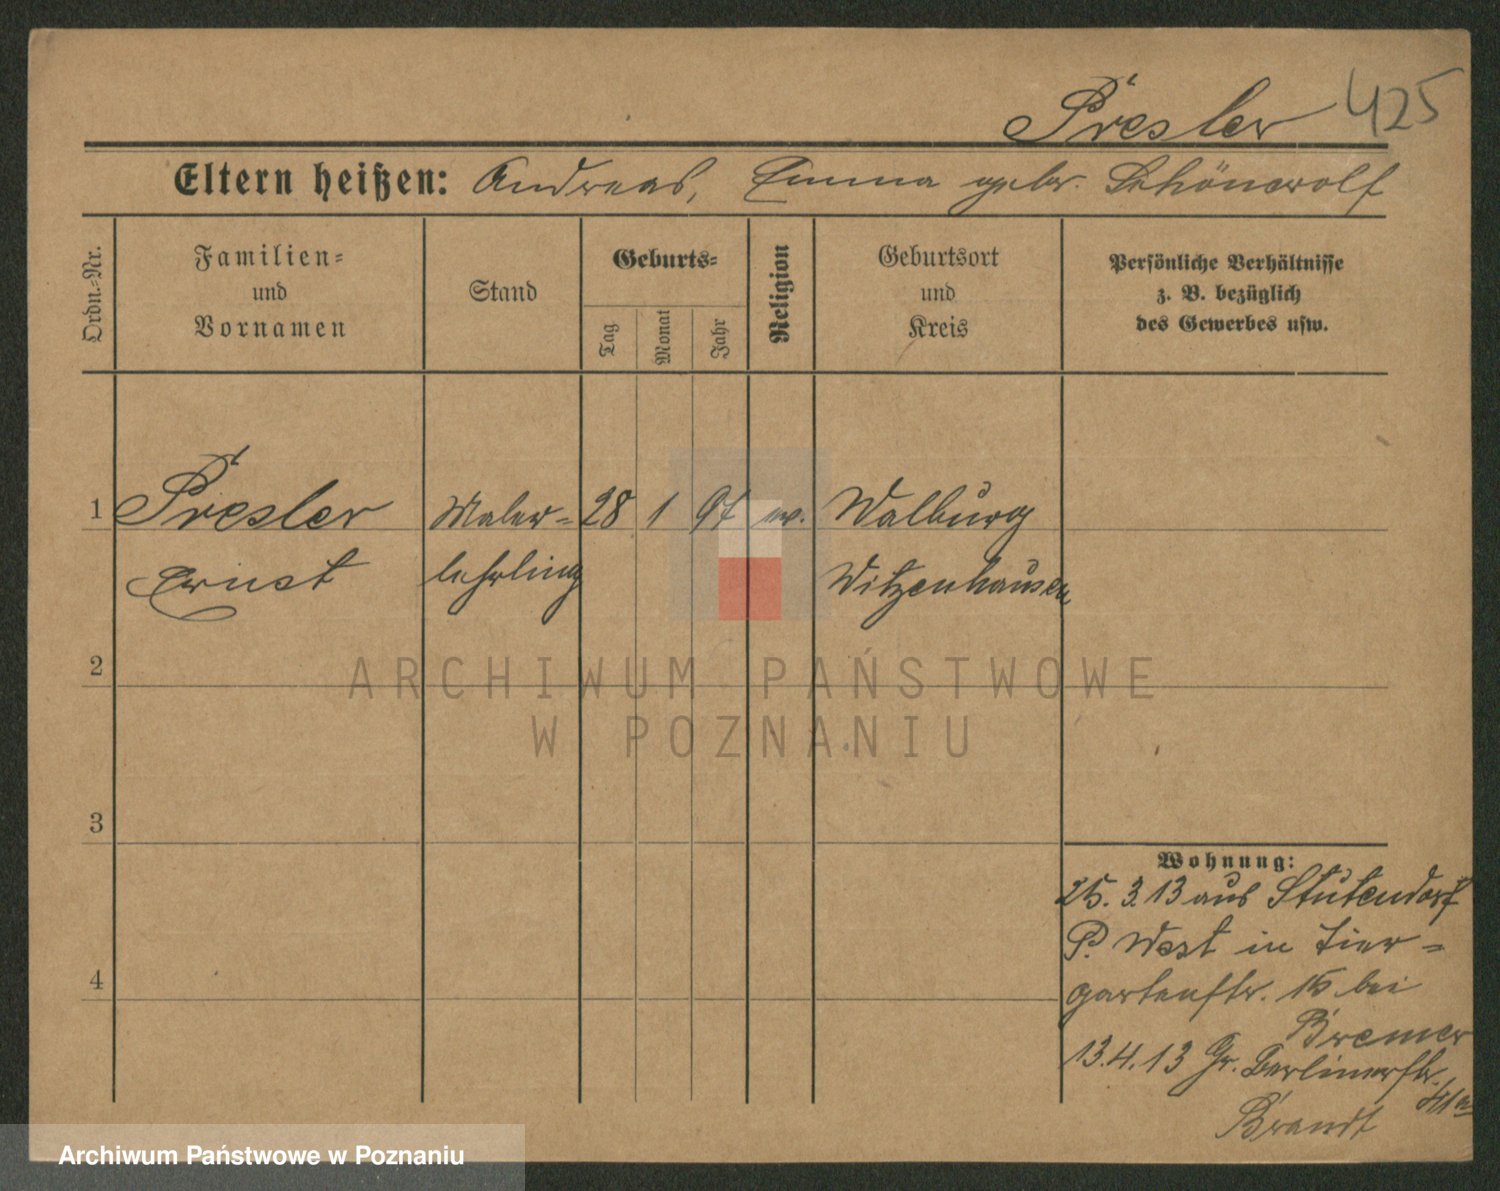 Presler 425
Eltern heißen: Andreas, Emma gebr. Schönewolf
Ordn.-Nr.
Familien-
und
Vornamen
Stand
Geburts-
Tag
Monat
Jahr
Religion
Geburtsort
und
Kreis
Persönliche Verhältnisse
z. B. bezüglich
des Gewerbes usw.
1 Presler Maler- 28 1 97 ev. Walburg
Ernst lehrling Witzenhausen
2
ARCHIWUM PAŃSTWOWE
W POZNANIU
3
Wohnung:
25. 3. 13 aus Stutendorf
P. West in Tier-
gartenstr. 15 bei
Bremer
13.4.13 Gr. Berlinerstr.
Brandt
4
Archiwum Państwowe w Poznaniu